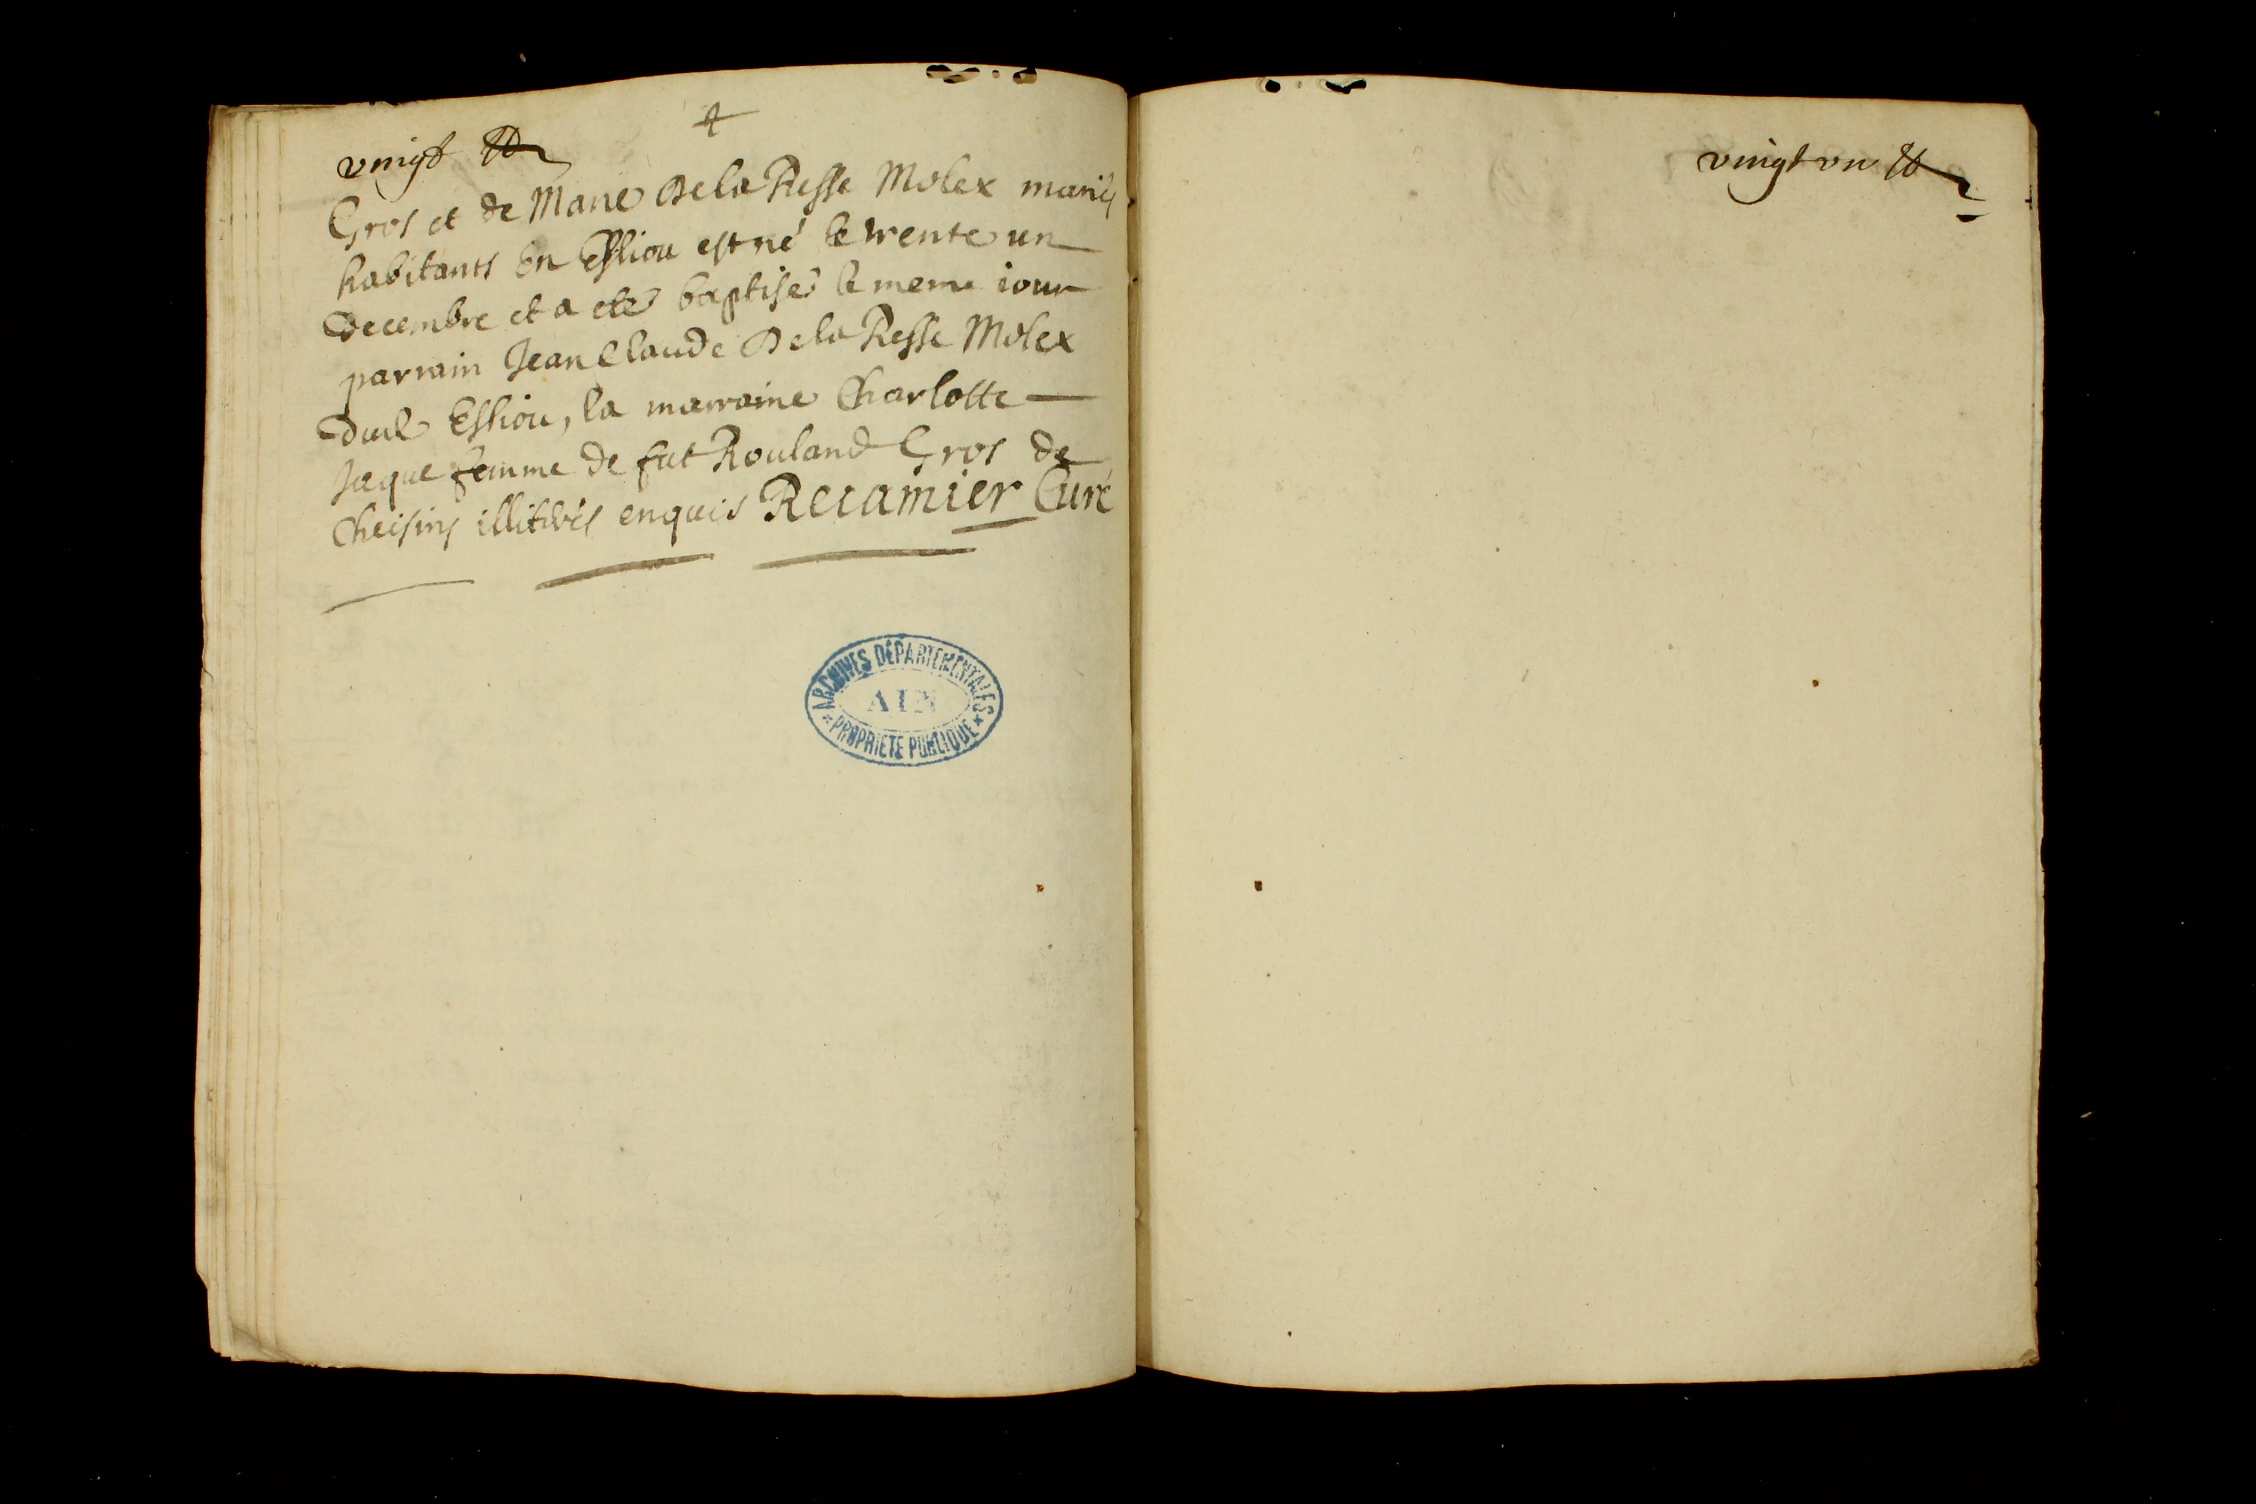 vingt
Gros et de Marie De la Resse Molex mariés
habitants en Essiou est né le trente un
decembre et a eté baptisé le meme iour
parrain Jean Claude De la Resse Molex
dud Essiou, la marraine Charlotte
Jaque femme de fut Rouland Gros de
Cheisins illiterés enquis Recamier Curé
ARCHIVES DÉPARTEMENTALES
AIN
PROPRIÉTÉ PUBLIQUE
vingt vn